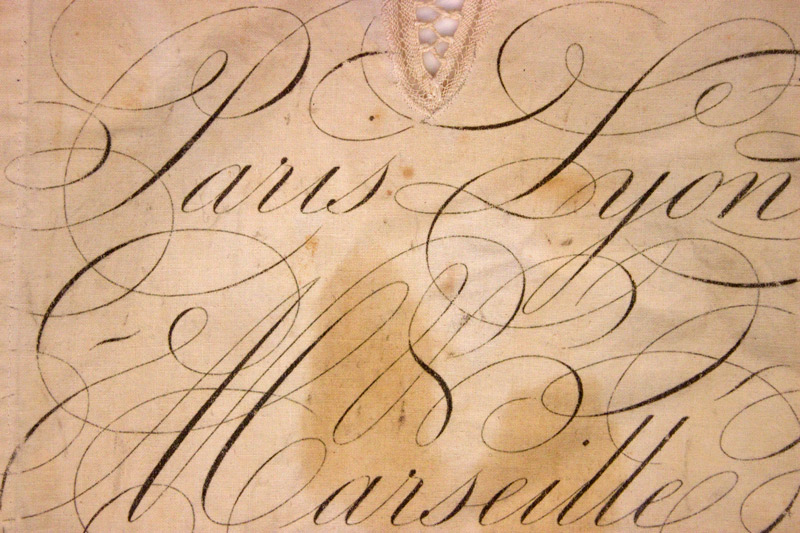 Paris Lyon
- & 
Marseille